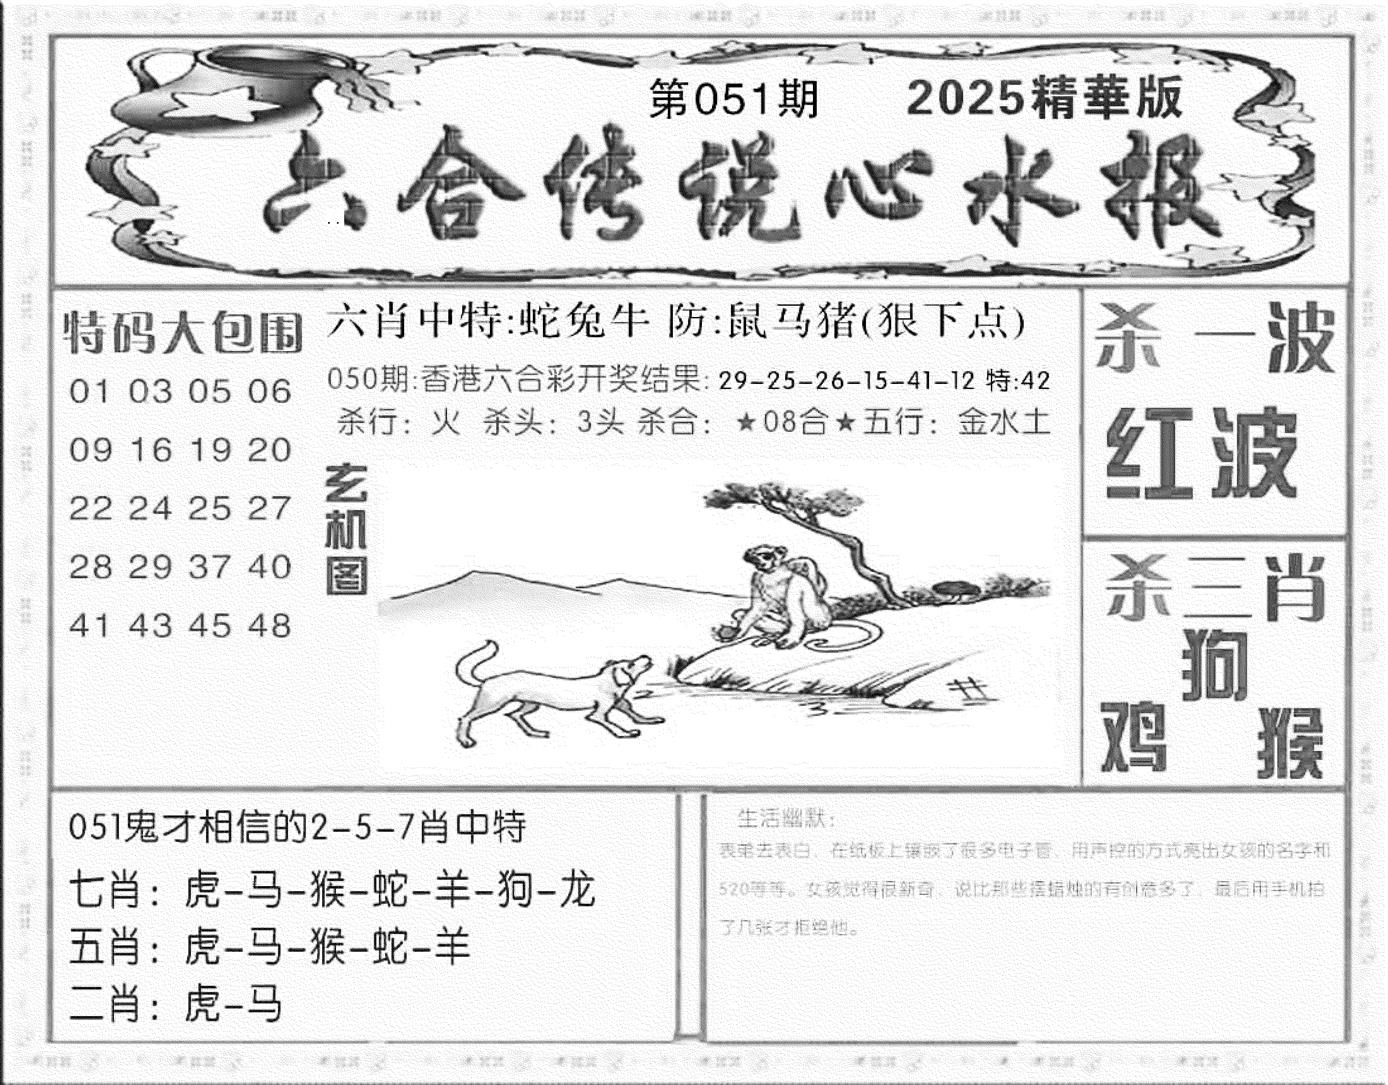 第051期 2025精華版
六合传说心水报
特码大包围
01 03 05 06
09 16 19 20
22 24 25 27
28 29 37 40
41 43 45 48
六肖中特:蛇兔牛 防:鼠马猪(狠下点)
050期:香港六合彩开奖结果: 29-25-26-15-41-12 特:42
杀行: 火 杀头: 3头 杀合: ★08合★五行: 金水土
玄机图
杀一波
红波
杀三肖
狗
鸡 猴
051鬼才相信的2-5-7肖中特
七肖: 虎-马-猴-蛇-羊-狗-龙
五肖: 虎-马-猴-蛇-羊
二肖: 虎-马
生活幽默:
表弟去表白、在纸板上镶嵌了很多电子管、用声控的方式亮出女孩的名字和
520等等。女孩觉得很新奇、说比那些摆蜡烛的有创意多了、最后用手机拍
了几张才拒绝他。